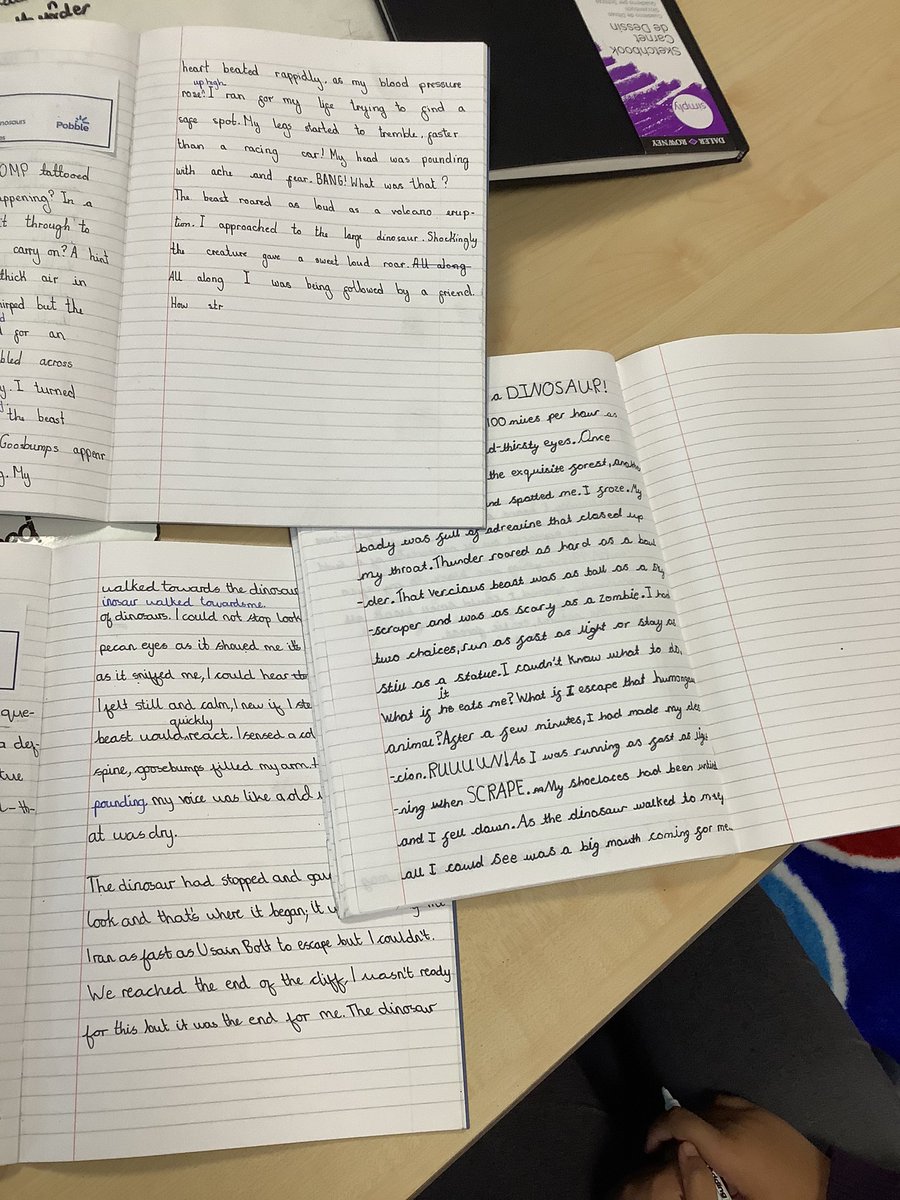 heart beated rappidly, as my blood pressure
up high
rose! I ran for my life trying to find a
safe spot. My legs started to tremble, faster
than a racing car! My head was pounding
with ache and fear. BANG! What was that?
The beast roared as loud as a volcano erup-
tion. I approached to the large dinosaur. Shockingly
the creature gave a sweet loud roar. All along
All along I was being followed by a friend.
How str
nosaurs
Pobble
OMP tattooed
ppening? In a
t through to
carry on? A hint
thick air in
irped but the
for an
bled across
y. I turned
the beast
Goosbumps appear
g. My
Sketchbook
Carnet
de Dessin
simply
DALER ROWNEY
a DINOSAUR!
100 miles per hour as
d-thirsty eyes. Once
the exquisite forest,
nd spotted me. I froze. My
body was full of adrealine that closed up
my throat. Thunder roared as hard as a boul
-der. That vercious beast was as tall as a sky
-scraper and was as scary as a zombie. I had
two choices, run as fast as light or stay as
still as a statue. I couldn't know what to do,
it
What if he eats me? What if I escape that
animal? After a few minutes, I had made my dec
-cion. RUUUUN! As I was running as fast as lig
-ning when SCRAPE. My shoelaces had been
and I fell down. As the dinosaur walked to me,
all I could see was a big mouth coming for me.
walked towards the dinosaur
inosaur walked towardsme.
of dinosaurs. I could not stop look
pecan eyes as it showed me it's
as it sniffed me, I could hear
I felt still and calm, I new if I ste
quickly
beast would react. I sensed a col
spine, goosebumps filled my arm.
pounding. my voice was like a old
at was dry.
The dinosaur had stopped and gav
look and that's where it began; it
I ran as fast as Usain Bolt to escape but I couldn't.
We reached the end of the cliff, I wasn't ready
for this but it was the end for me. The dinosaur
que-
a def-
tue
l-th-